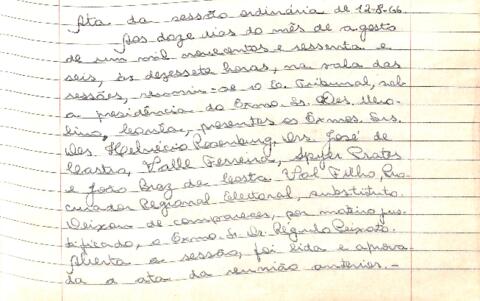 Ata da sessão ordinária de 12-8-66.
Aos doze dias do mês de agosto
de um mil novecentos e sessenta e
seis, às dezessete horas, na sala das
sessões, reuniu-se o E. Tribunal, sob
a presidência do Exmo. Sr. Des.
Costa, presentes os Exmos. Srs.
Des. Helvécio Rosenburg, Drs. José de
Castro, Valle Ferreira, Spyer Prates
e João Braz da Costa Val Filho, Pro-
curador Regional Eleitoral, substituto.
Deixou de comparecer, por motivo jus-
tificado, o Exmo. Sr. Dr. Régulo Peixoto.
Aberta a sessão, foi lida e aprova-
da a ata da reunião anterior. -